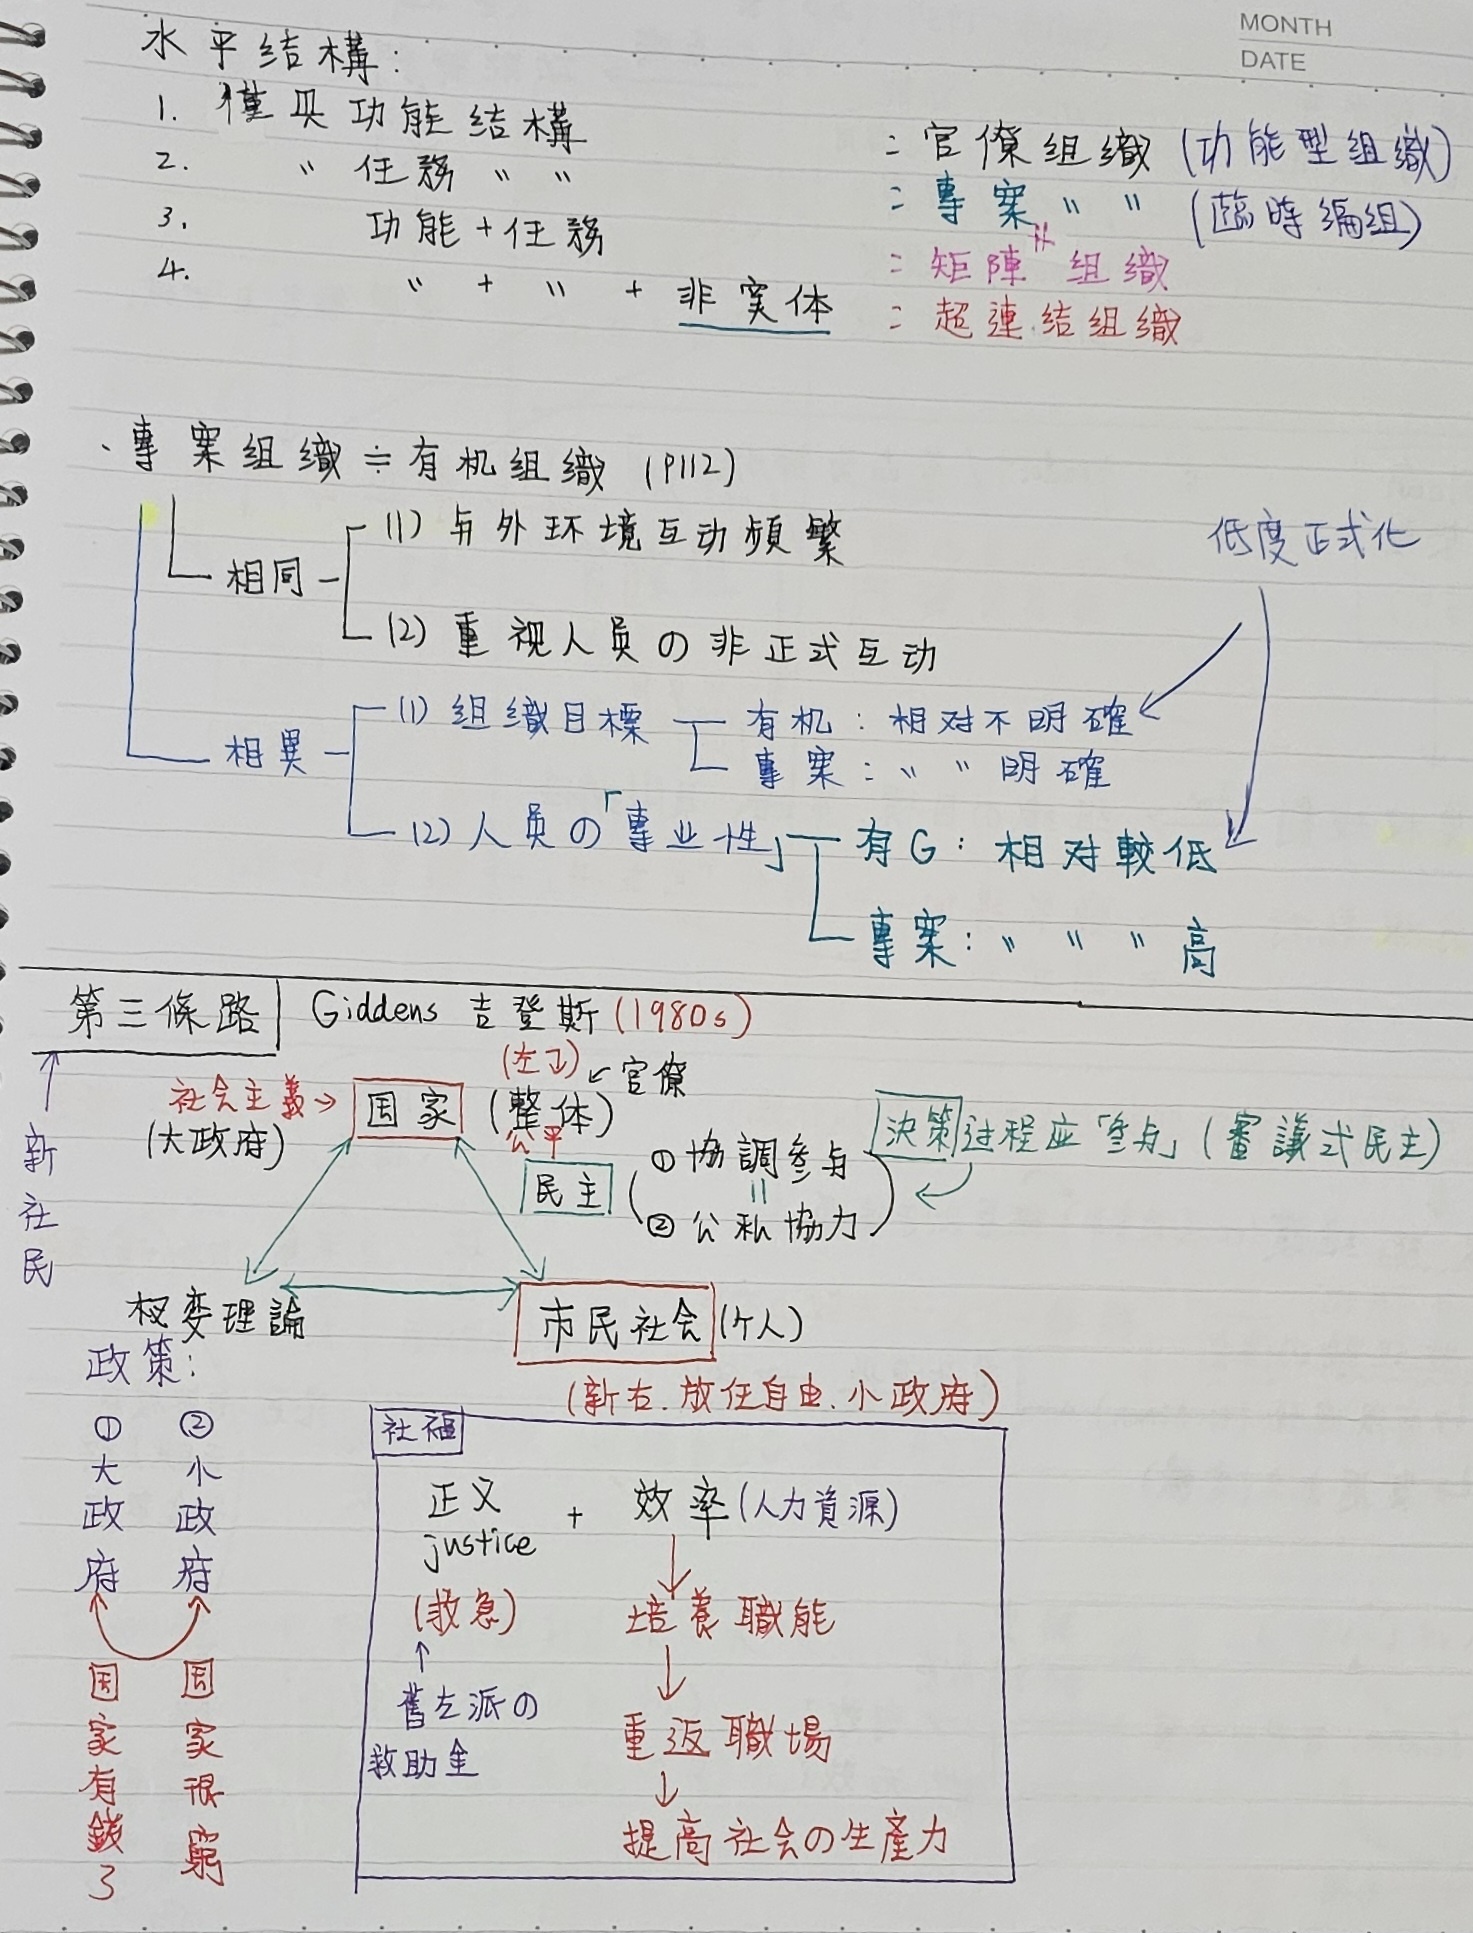 MONTH
DATE
水平結構：
1. 僅具功能結構 ：官僚組織（功能型組織）
2. 〃 任務 〃 〃 ：專案 〃 〃 （臨時編組）
3. 功能＋任務 ：矩陣 組織
4. 〃 ＋ 〃 ＋ 非实体 ：超連結組織
、專案組織≒有机組織（P112）
相同
(1) 与外环境互动頻繁
(2) 重視人員の非正式互动
低度正式化
相異
(1) 組織目標
有机：相对不明確
專案：〃 〃 明確
(2) 人員の「專业性」
有G：相对較低
專案：〃 〃 〃 高
第三條路 Giddens 吉登斯（1980s）
新社民
社会主義→
（大政府）
国家
（左 ）
（整体）←官僚
公平
民主
① 協調參与
〃
② 公私協力
決策过程应「參与」（審議式民主）
权变理論
市民社会（个人）
（新右．放任自由．小政府）
政策：
① 大政府
② 小政府
国家有錢了
国家很窮
社福
正义 ＋ 效率（人力資源）
justice
（救急）
舊左派の
救助金
培養職能
重返職場
提高社会の生產力